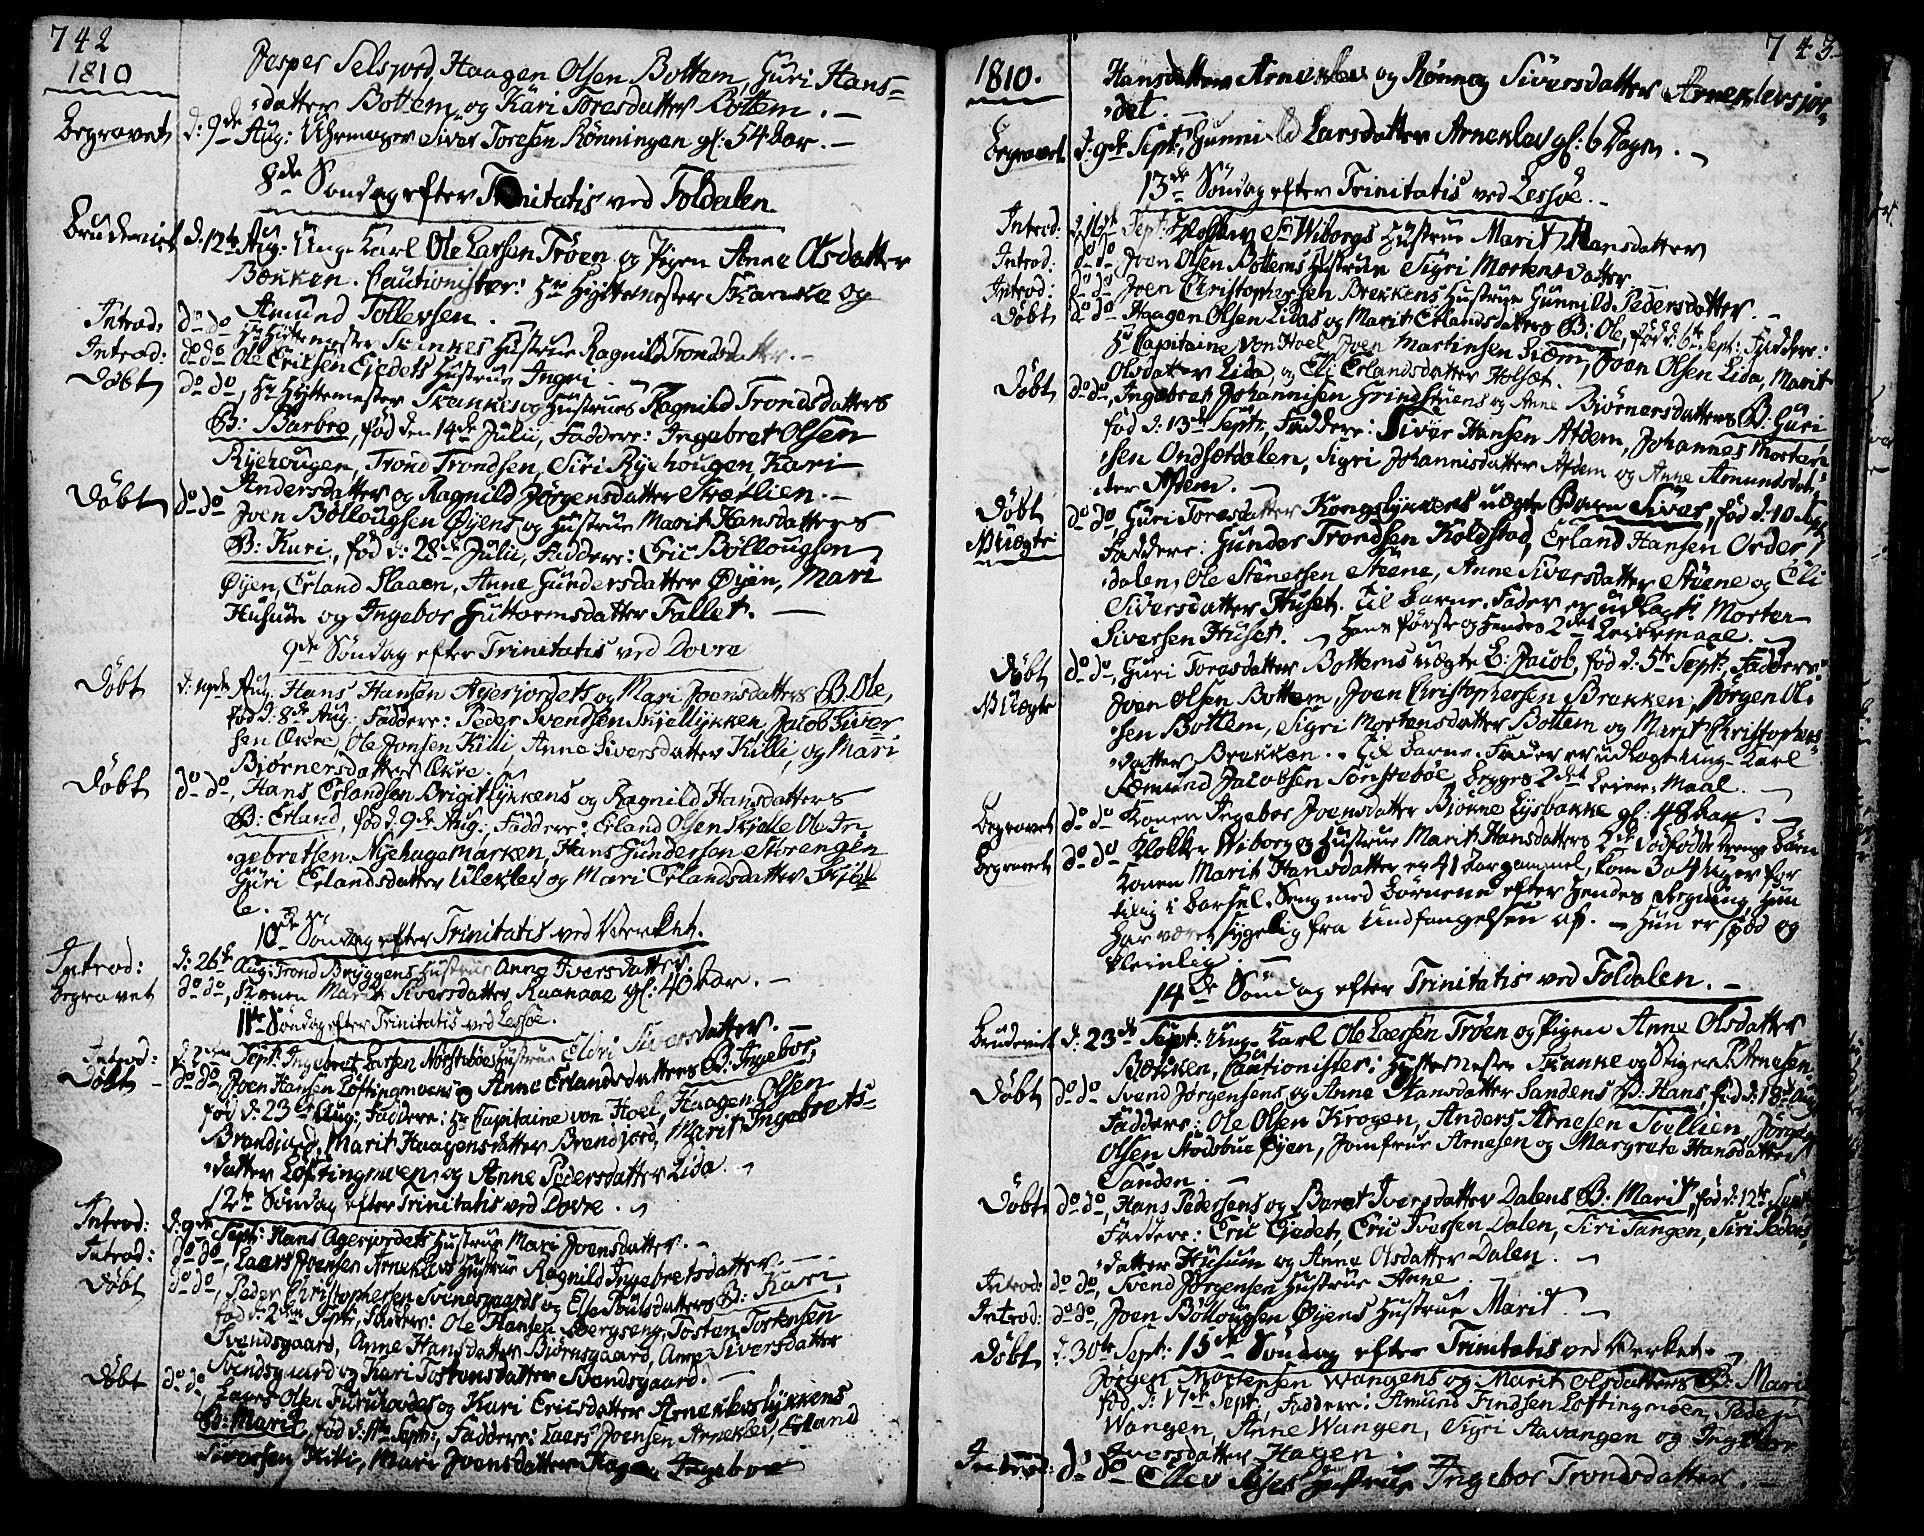 742
1810
Jesper Selsjord, Haagen Olsen Bottem, Guri Hans-
datter Bottem, og Kari Toresdatter Bottem. —
Begravet d: 9de Aug: Uhrmager Siver Toresen Rønningen gl: 54 Aar. —
8de Søndag efter Trinitatis ved Foldalen.
Brudeviet d: 12te Aug: Ung-Karl Ole Larsen Trøen og Pigen Anne Olsdatter
Bækken. Cautionister: Hr Hyttemester Skanke og
Amund Tollevsen.
Introd: do do Hr Hyttemester Skankes Hustrue Ragnild Trondsdatter. —
Introd: do do Ole Ericksen Gjedets Hustrue Ingri. —
Døbt do do, Hr Hyttemester Skankes og Hustrues Ragnild Trondsdatters
B: Barbro, fød den 14de Julii, Faddere: Ingebret Olsen
Ryehougen, Trond Trondsen, Siri Ryehougen, Kari
Andersdatter og Ragnild Jørgensdatter Stræthlien. —
Døbt do do Joen Bøllougsen Øyens og Hustrue Marit Hansdatters
B: Kari, fød d: 28de Julii, Faddere: Eric Bøllougsen
Øyen, Erland Slaaen, Anne Gundersdatter Øyen, Mari
Husum og Ingebor Guttormsdatter Fallet. —
9de Søndag efter Trinitatis ved Dovre
Døbt d: 19de Aug. Hans Hansen Agerjordets og Mari Joensdatters B. Ole,
fød d: 8de Aug: Faddere: Peder Svendsen Skjellykken, Jacob Siver
sen Økre, Ole Jonsen Killi, Anne Siversdatter Killi, og Mari
Biørnersdatter Økre.
Døbt do do, Hans Erlandsen Brigitlykkens og Ragnild Hansdatters
B: Erland, fød d. 9de Aug: Faddere: Erland Olsen Skjelle Ole In-
gebretsen Nyehaugemarken, Hans Gundersen Storengen
Guri Erlandsdatter Ulekleb og Mari Erlandsdatter Skjel
le.
10de Søndag efter Trinitatis ved Værket.
Introd: d: 26te Aug: Trond Bryggens Hustrue Anne Iversdatter
Begravet do do, Konen Marit Siversdatter Raanaae gl: 40 Aar. —
11te Søndag efter Trinitatis ved Lessøe.
Introd: d 2den Sept: Ingebret Larsen Norstebøes Hustrue Eldri Siversdatter. —
Døbt do do, Joen Hansen Loftingmoens og Anne Erlandsdatters B: Ingebor,
fød d: 23de Aug: Faddere: Hr Capitaine von Hoel, Haagen Olsen
Brandjord, Marit Haagensdatter Brandjord, Marit Ingebrets-
datter Loftingmoen, og Anne Pedersdatter Lida. —
12te Søndag efter Trinitatis ved Dovre.
Introd: d: 9de Sept: Hans Agerjordets Hustrue Mari Joensdatter. —
Introd: do do, Laars Joensen Arneklevs Hustrue Ragnild Ingebretsdatter. —
Døbt do do, Peder Christophersen Svendsgaards og Else Poulsdatters B: Kari,
fød d: 2den Sept, Faddere: Ole Hansen Bergseng, Tosten Tostensen
Svendsgaard, Anne Hansdatter Biørnsgaard, Anne Siversdatter
Svendsgaard og Kari Tostensdatter Svendsgaard. —
Døbt do do Laars Olsen Furuhovdes og Kari Ericsdatter Arneklevslykkens
B: Marit, fød d: 1te Sept:, Faddere: Laars Joensen Arneklev, Erland
Siversen Kiti, Mari Joensdatter Hage, Ingebor
743
1810.
Hansdatter Arneklev og Rønnog Siversdatter Arneklevsjor-
det. —
Begravet d: 9de Sept:, Gunnild Larsdatter Arneklev gl: 6 Dage. —
13de Søndag efter Trinitatis ved Lessøe. —
Introd: d. 16de Sept: Klokker Sr Wiborgs Hustrue Marit Hansdatter
Introd: do do Joen Olsen Bottems Hustrue Sigri Mortensdatter
Introd: do do Joen Christophersen Brekkens Hustrue Gunnild Pedersdatter. —
Døbt do do Haagen Olsen Lidas og Marit Erlandsdatters B: Ole, fød d: 6te Sept: Faddere:
Hr Capitaine von Hoel Joen Martinsen Siem, Joen Olsen Lida, Marit
Olsdatter Lida, og Eli Erlandsdatter Holset.
Døbt do do, Ingebret Johannisen Grindstuens og Anne Biørnersdatters B. Guri
fød d: 13de Sept, Faddere: Siver Hansen Afdem, Johannes Morten
sen Ondsætdalen, Sigri Johannisdatter Afdem og Anne Amundsdat-
ter Afdem. —
Døbt do do, Guri Toresdatter Kongslykkens uægte Barn Siver, fød d: 10 Sept
N Uægte Faddere: Gunder Trondsen Koldstad, Erland Hansen Order
dalen, Ole Stenersen Steene, Anne Siversdatter Steene og Eli
Siversdatter Huset. Til Barne-Fader er udlagt: Morten
Siversen Huset. — Hans første og hendes 2det Leiermaal. —
Døbt do do, Guri Toresdatter Bottems uægte B: Jacob, fød d: 5te Sept: Faddere:
N Uægte Joen Olsen Bottem, Joen Christophersen Brekken, Jørgen Ol
sen Bottem, Sigri Mortensdatter Bottem og Marit Christophers-
datter Brekken. Til Barne-Fader er udlagt Ung-Karl
Sæmund Jacobsen Sønstebøe, begges 2det Leier-Maal. —
Begravet do do Konen Ingebor Joensdatter Biørne Lysbakke gl: 48 Aar. —
Begravet do do Klokker Wiborg og Hustrue Marit Hansdatters 2de dødfødde Drenge Børn
Konen Marit Hansdatter er 41 Aar gammel, kom 3 a 4 Uger for
tilig i Barsel Seng med Børnene efter hendes Regning, Hun
har været sygelig fra Undfangelsen af. — Hun er spæd og
kleinlig. —
14de Søndag efter Trinitatis ved Foldalen. —
Brudeviet d: 23de Sept: Ung-Karl Ole Laersen Trøen og Pigen Anne Olsdatter
Bækken, Cautionister: Hyttemester Skanke og Stiger P. Arnesen
Døbt do do Svend Jørgensens og Anne Hansdatter Sandens B: Hans, fød d: 18de Aug
Faddere: Ole Olsen Krogen, Anders Arnesen Tvellien, Jørgen
Olsen Stodsbue Øyen, Jomfrue Arnesen og Margrete Hansdatter
Sanden. —
Døbt do do, Hans Pedersens og Beret Iversdatter Dalens B: Marit, fød d: 12te Sept
Faddere: Eric Gjedet, Eric Iversen Dalen, Siri Tangen, Siri Peders-
datter Husum og Anne Olsdatter Dalen. —
Introd: do do, Svend Jørgensen Hustrue Anne.
Introd: do do, Joen Bøllougsen Øyens Hustrue Marit. —
15de Søndag efter Trinitatis ved Verket. —
Døbt d: 30te Sept: Jørgen Mortensen Wangens og Marit Olsdatters B: Mari
fød d: 17de Sept: Faddere: Amund Findsen Loftingmoen, Peder
Wangen, Anne Wangen, Sigri Aavangen og Ingebor
Iversdatter Hagen.
Introd: do do Ellev Hustrue Ingebor Trondsdatter. —